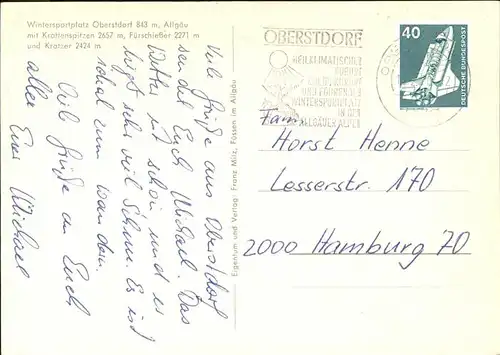 Wintersportplatz Oberstdorf 843 m, Allgäu
mit Krottenspitzen 2657 m, Fürschießer 2271 m
und Kratzer 2424 m
Viele Grüße aus Oberstdorf
sendet Euch Michael. Das
Wetter ist schön und es
liegt sehr viel Schnee. Es ist
schal zum wandern
Viele Grüße an Euch
alle Euer Michael
Eigentum und Verlag: Franz Milz, Füssen im Allgäu
OBERSTDORF
HEILKLIMATISCHER
KURORT
UND FÜHRENDER
WINTERSPORTPLATZ
IN DEN
ALLGÄUER ALPEN
40
DEUTSCHE BUNDESPOST
Fam.
Horst Henne
Lesserstr. 170
2000 Hamburg 70